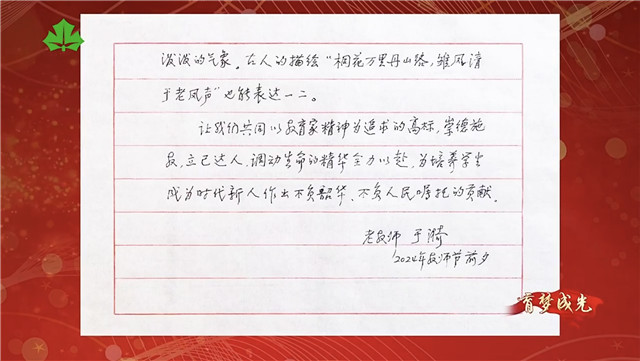 泼泼的气象。古人的描绘“桐花万里丹山路，雏凤清
于老凤声”也能表达一二。
让我们共同以教育家精神为追求的高标，崇德施
教，立己达人，调动生命的精华全力以赴，为培养学生
成为时代新人作出不负韶华、不负人民嘱托的贡献。
老教师 于漪
2024年教师节前夕
育梦成光